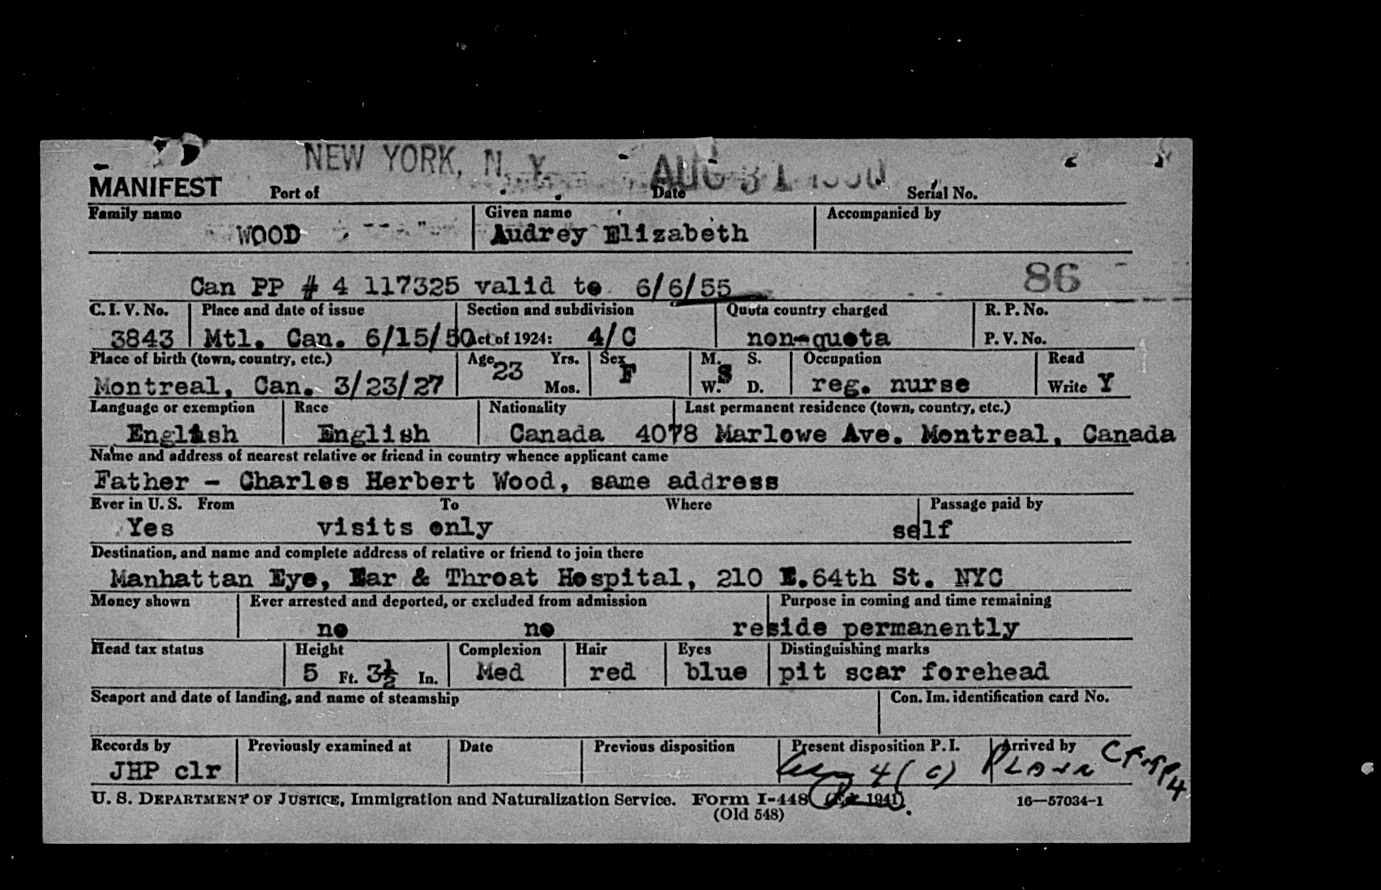 NEW YORK, N. Y. AUG 31 1950
MANIFEST Port of Date Serial No.
Family name Given name Accompanied by
WOOD Audrey Elizabeth
Can PP # 4 117325 valid to 6/6/55 86
C. I. V. No. Place and date of issue Section and subdivision Quota country charged R. P. No.
3843 Mtl. Can. 6/15/50 Act of 1924: 4/C non-quota P. V. No.
Place of birth (town, country, etc.) Age Yrs. Sex M. S. Occupation Read
Montreal, Can. 3/23/27 23 Mos. F W. S D. reg. nurse Write Y
Language or exemption Race Nationality Last permanent residence (town, country, etc.)
English English Canada 4078 Marlowe Ave. Montreal, Canada
Name and address of nearest relative or friend in country whence applicant came
Father - Charles Herbert Wood, same address
Ever in U. S. From To Where Passage paid by
Yes visits only self
Destination, and name and complete address of relative or friend to join there
Manhattan Eye, Ear & Throat Hospital, 210 E.64th St. NYC
Money shown Ever arrested and deported, or excluded from admission Purpose in coming and time remaining
no no reside permanently
Head tax status Height Complexion Hair Eyes Distinguishing marks
5 Ft. 3½ In. Med red blue pit scar forehead
Seaport and date of landing, and name of steamship Con. Im. identification card No.
Records by Previously examined at Date Previous disposition Present disposition P. I. Arrived by
JHP clr 4(c) PLANE
U. S. DEPARTMENT OF JUSTICE, Immigration and Naturalization Service. FORM I-448 16—57034-1
(Old 548)